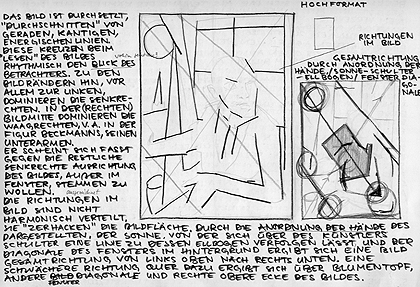 DAS BILD IST DURCHSETZT,
"DURCHSCHNITTEN" VON
GERADEN, KANTIGEN,
ENERGISCHEN LINIEN.
DIESE KREUZEN BEIM
"LESEN" DES BILDES
RHYTHMISCH DEN BLICK DES
BETRACHTERS. ZU DEN
BILDRÄNDERN HIN, VOR
ALLEM ZUR LINKEN,
DOMINIEREN DIE SENKRE-
CHTEN. IN DER (RECHTEN)
BILDMITTE DOMINIEREN DIE
WAAGRECHTEN, V. A. IN DER
FIGUR BECKMANNS, SEINEN
UNTERARMEN.
ER SCHEINT SICH FAST
GEGEN DIE RESTLICHE
SENKRECHTE AUSRICHTUNG
DES BILDES, AUßER IM
FENSTER, STEMMEN ZU
WOLLEN.
DIE RICHTUNGEN IM
BILD SIND NICHT
HARMONISCH VERTEILT,
SIE "ZERHACKEN" DIE BILDFLÄCHE. DURCH DIE ANORDNUNG DER HÄNDE DES
DARGESTELLTEN, DER SONNE, VON DER SICH ÜBER DES KÜNSTLERS
SCHULTER EINE LINIE ZU DESSEN ELLBOGEN VERFOLGEN LÄSST UND DER
DIAGONALE DES FENSTERS IM HINTERGRUND ERGIBT SICH EINE BILD
GESAMTRICHTUNG VON LINKS OBEN NACH RECHTS UNTEN. EINE
SCHWÄCHERE RICHTUNG QUER DAZU ERGIBT SICH ÜBER BLUMENTOPF,
ANDERE BILD DIAGONALE UND RECHTE OBERE ECKE DES BILDES.
FENSTER
HOCHFORMAT
RICHTUNGEN
IM BILD
GESAMTRICHTUNG
DURCH ANORDNUNG DER
HÄNDE / SONNE - SCHULTER
- ELLBOGEN / FENSTER DIA-
GO-
NALE